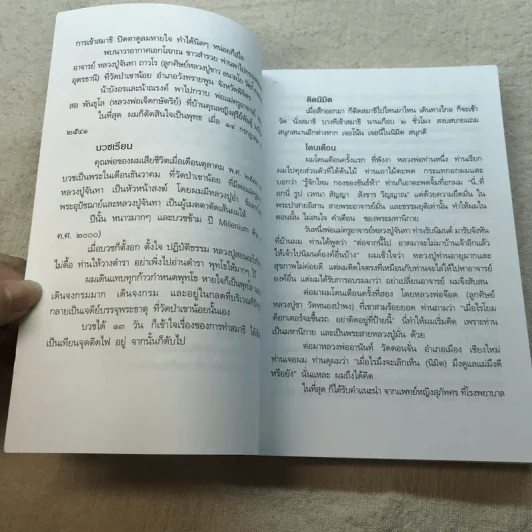 การเข้าสมาธิ ปิดตาดูลมหายใจ ทำได้นิดๆ หน่อยก็เมื่อ
พบนาวาอากาศเอกโสภณ ขาวสำรวย ท่านพาไปกราบ
อาจารย์ หลวงปู่จันทา ถาวโร (ลูกศิษย์หลวงปู่ขาว
อุดรธานี) ที่วัดป่าเขาน้อย อำเภอวังทรายพูน
น้าป๋องและน้าณรงค์ พาไปกราบ พ่อแม่ครูอาจารย์
สอ พันธุโล (หลวงพ่อเจ็ดกษัตริย์) ที่บ้านคุณหญิงสุรีย์พันธ์
ในที่สุด ผมก็ตัดสินใจเป็นพุทธ เมื่อ ๑๔ กรกฎาคม
๒๕๔๑
บวชเรียน
คุณพ่อของผมเสียชีวิตเมื่อเดือนตุลาคม พ.ศ.
บวชเป็นพระในเดือนธันวาคม ที่วัดป่าเขาน้อย
หลวงปู่จันทา เป็นหัวหน้าสงฆ์ โดยผมมีหลวงปู่
พระอุปัชฌาย์และหลวงปู่จันทา เป็นผู้เมตตาตัดเส้นผมให้
ปีนั้น หนาวมากๆ และบวชข้าม ปี Millenium
ค.ศ. ๒๐๐๐)
เมื่อบวชก็ตั้งอก ตั้งใจ ปฏิบัติธรรม หลวงปู่สอน
ไม่ดื้อ ท่านให้วางตำรา อย่าเพิ่งไปอ่านตำรา พุทโธให้มากๆ ไว้
ผมเดินแทบทุกก้าวกำหนดพุทโธ หายใจก็เป็นพุทโธ
เดินจงกรมมาก เดินจงกรม และอยู่ในกลดที่บริเวณ
กลายเป็นเจดีย์บรรจุพระธาตุ ที่วัดป่าเขาน้อยนั่นเอง
บวชได้ ๑๓ วัน ก็เข้าใจเรื่องของการทำสมาธิ
เป็นเทียนจุดติดไฟ อยู่ จากนั้นก็ดับไป
ติดนิมิต
เมื่อสึกออกมา ก็ติดสมาธิไปไหนมาไหน เดินทางไกล ก็จะเข้า
วัด นั่งสมาธิ บางทีเข้าสมาธิ นานเกือบ ๒ ชั่วโมง สงบสบายแถม
สนุกสนานอีกต่างหาก เจอโน้น เจอนี่ในนิมิต สนุกดี
โดนเตือน
ผมโดนเตือนครั้งแรก ที่พังงา หลวงพ่อท่านหนึ่ง ท่านเรียก
ผมไปคุยส่วนตัวที่ใต้ต้นไม้ ท่านเอาไม้ตะพด กระแทกอกผมและ
บอกว่า “รู้จักไหม กองของขันธ์ห้า” ท่านก็เอาตะพดจิ้มที่อกผม “นี่..ที่
อกนี่ รูป เวทนา สัญญา สังขาร วิญญาณ” แต่ด้วยความยึดมั่น ใน
พระป่าสายอีสาน สายพระอาจารย์มั่น และธรรมยุติเท่านั้น ทำให้ผมใน
ตอนนั้น ไม่สนใจ คำเตือน ของพระมหานิกาย
วันหนึ่งพ่อแม่ครูอาจารย์หลวงปู่จันทา ท่านรับนิมนต์ มารับจังหัน
ที่บ้านผม ท่านได้พูดว่า “ต่อจากนี้ไป อาตมาจะไม่มาบ้านเจ้าอีกแล้ว
ให้เจ้าไปนิมนต์องค์อื่นบ้าง” ผมเข้าใจว่า หลวงปู่ท่านอายุมากและ
สุขภาพไม่ค่อยดี แต่ผมติดใจตรงที่เหมือนกับท่านจะไม่ให้ไปหาอาจารย์
องค์อื่น แต่ผมได้รับการอบรมมาว่า อย่าเปลี่ยนอาจารย์ ผมจึงสับสน
ต่อมาผมโดนเตือนครั้งที่สอง โดยหลวงพ่อจ๊อด (ลูกศิษย์
หลวงปู่ชา วัดหนองป่าพง) ที่เขาสามร้อยยอด ท่านถามว่า “เมื่อไรโยม
คิดเกเตอร์จะขึ้นรถ อย่าติดอยู่ที่ป้ายนี่” นี่ทำให้ผมเริ่มคิด เพราะท่าน
เป็นมหานิกาย และเป็นพระสายหลวงปู่มั่น ด้วย
ต่อมาหลวงพ่ออานันท์ วัดดอนจั่น อำเภอเมือง เชียงใหม่
ท่านเจอผม ท่านดุผมว่า “เมื่อไรมึงจะเลิกเห็น (นิมิต) มึงดูแลแม่มึงดี
หรือยัง” นั่นแหละ ผมถึงได้คิด
ในที่สุด ก็ได้รับคำแนะนำ จากแพทย์หญิงสุภัทศร ที่โรงพยาบาล